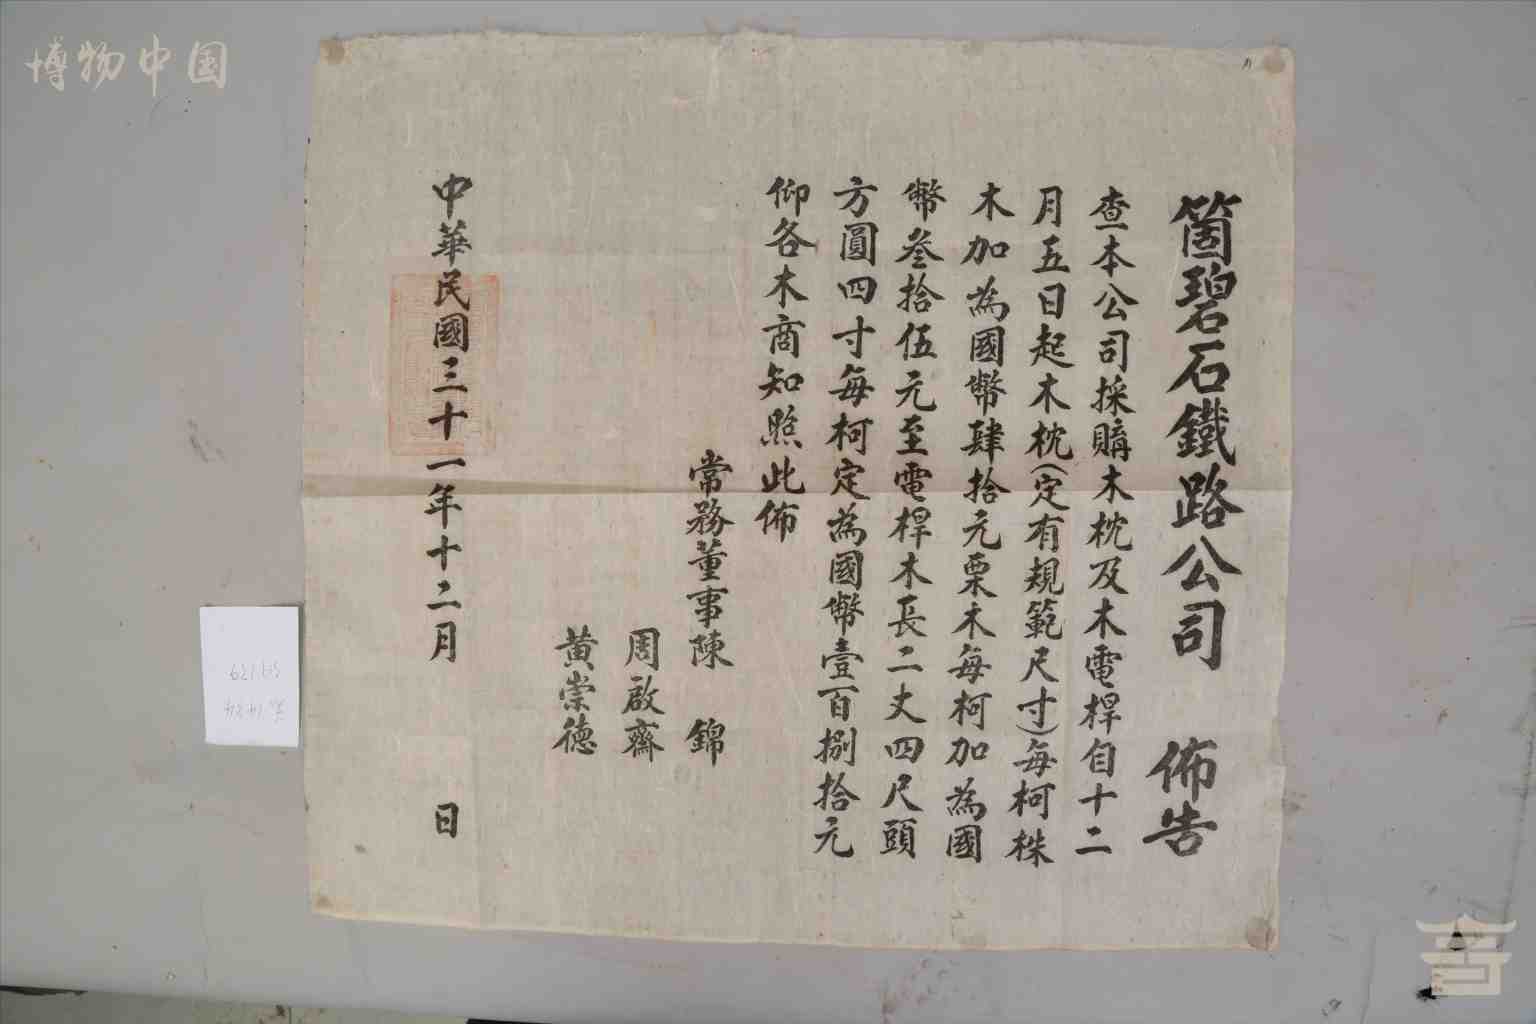 箇碧石鐵路公司 佈告
查本公司採購木枕及木電桿自十二
月五日起木枕(定有規範尺寸)每柯株
木加為國幣肆拾元栗木每柯加為國
幣叁拾伍元至電桿木長二丈四尺頭
方圓四寸每柯定為國幣壹百捌拾元
仰各木商知照此佈
常務董事陳 錦
周啟齋
黃崇德
中華民國三十一年十二月 日
博物中国